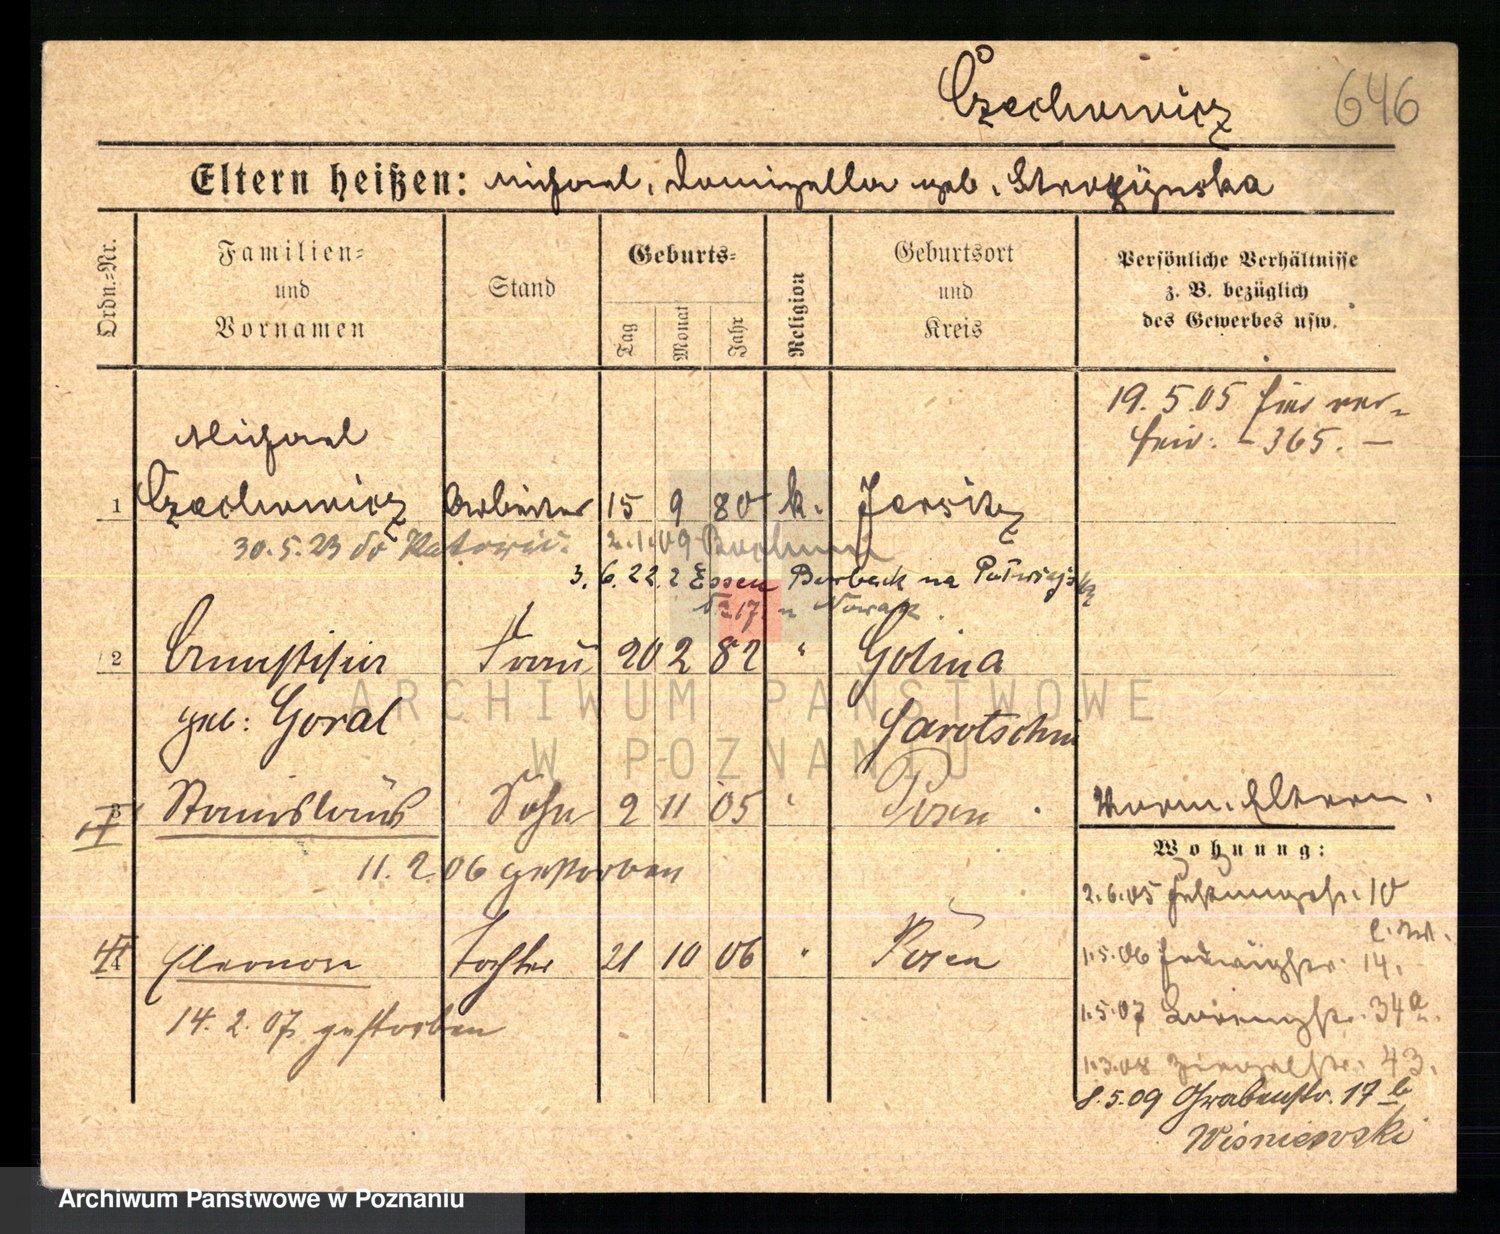 Czechowicz 646
Eltern heißen: Michael, Domizella geb. Strozynska
Ordn.-Nr.
Familien-
und
Vornamen
Stand
Geburts-
Tag
Monat
Jahr
Religion
Geburtsort
und
Kreis
Persönliche Verhältnisse
z. B. bezüglich
des Gewerbes usw.
19. 5. 05 hier
365. –
Michael
1 Czechowicz Arbeiter 15 9 80 k. Jersitz
30. 5. 23 do Katowic. 2. 1. 09 Bochum
3. 6. 22 z Essen Borbeck na
No 17 u Nowak.
2 Frau 20 2 82 " Golina
geb: Goral Jarotschin
3 Stanislaus Sohn 2 11 05 " Posen . Vorm. Eltern.
11. 2. 06 gestorben
Wohnung:
2. 6. 05 10
4 Eleonore Tochter 21 10 06 " Posen
1. 5. 06 Hedwigstr. 14.
14. 2. 07 gestorben
1. 5. 07 34a
1. 3. 08 43.
8. 5. 09 Grabenstr. 17 b
Wisniewski
ARCHIWUM PAŃSTWOWE
W POZNANIU
Archiwum Państwowe w Poznaniu